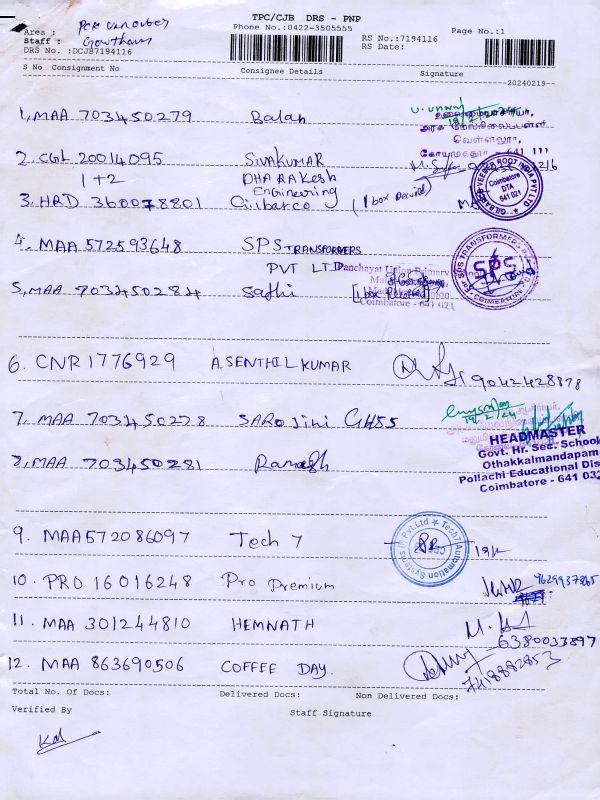 TPC/CJB DRS - PNP
Phone No.:0422-3505555
Page No.:1
Area :
Staff : Gowtham
DRS No. :DCJB7194116
RS No.:7194116
RS Date:
S No Consignment No Consignee Details Signature
20240219
1, MAA 703450279 Balan
தலைமையாசிரியர்,
அரசு மேல்நிலைப்பள்ளி
வெள்ளலூர்,
கோயமுத்தூர் - 641 111
2. CGL 20014095 SIVAKUMAR
1+2 DHARAKESH
Engineering
3. HRD 360078801 Gilbarco (1 box Received)
GILBARCO VEEDER ROOT INDIA PVT LTD
Coimbatore
DTA
641 021
4. MAA 572593648 SPS TRANSFORMERS
PVT LTD
For SPS TRANSFORMERS
SPS
COIMBATORE
Panchayat Union Primary School
Coimbatore - 641 021
5, MAA 703450284 Sathi [1 box Received]
6. CNR 1776929 A. SENTHIL KUMAR
9042428878
7. MAA 703450278 SAROJini GHSS
19/2/24
HEADMASTER
Govt. Hr. Sec. School
Othakkalmandapam
Pollachi Educational Dis
Coimbatore - 641 032
8, MAA 703450281 Ramesh
9. MAA 572086097 Tech 7
Tech7 Automation Systems (I) Pvt.Ltd
10. PRO 16016248 Pro Premium
9629937865
11. MAA 301244810 HEMNATH
6380033897
12. MAA 863690506 COFFEE DAY.
7418882853
Total No. Of Docs: Delivered Docs: Non Delivered Docs:
Verified By Staff Signature